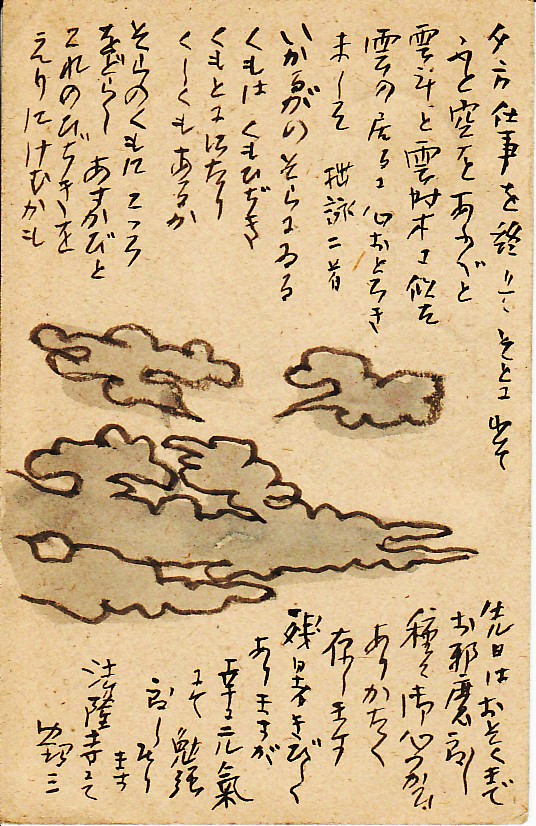 夕方仕事を終りてそとに出て
ふと空をあふぐと
雲斗と雲肘木に似た
雲の居るに心おどろき
ましそ 拙詠二首
いかるがのそらにゐる
くもは くもひぢき
くもとににたり
くしくもあるか
そらのくもに こころ
をどらし あすかびと
これのひぢきを
えりにけむかも
先日はおそくまで
お邪魔致し
種々御心づかひ
ありがたく
存じます
残暑きびしく
ありますが
幸に元氣
にて 勉強
致しをり
ます
法隆寺にて